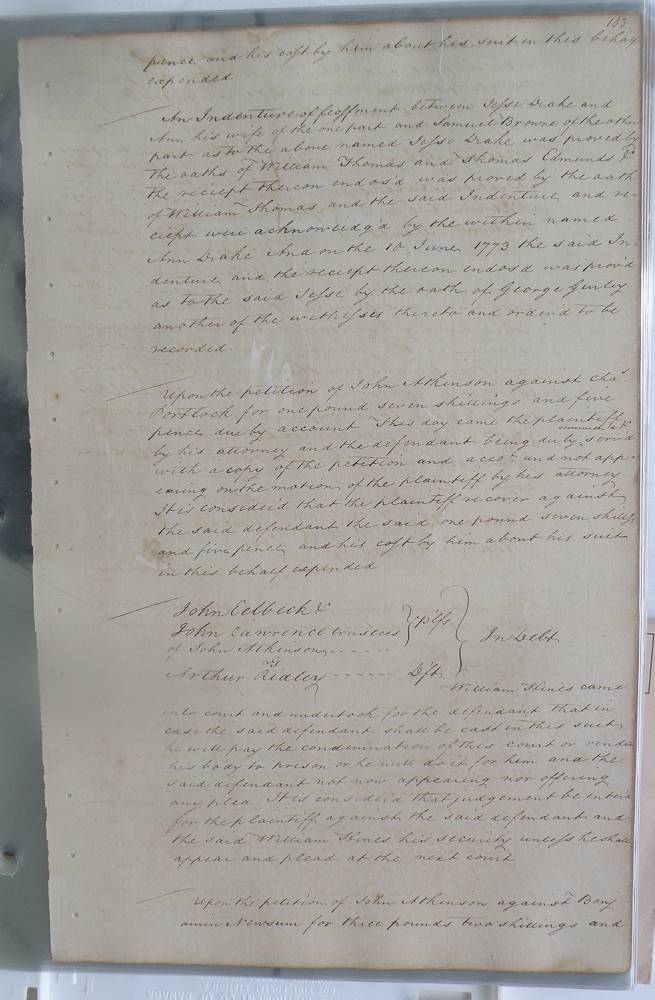 163
pence and his cost by him about his suit in this behalf
expended
An Indenture of feoffment between Jesse Drake and
Ann his wife of the one part and Samuel Browne of the other
part as to the above named Jesse Drake was proved by
the oaths of William Thomas and Thomas Edmunds &
the reciept thereon endos'd was proved by the oath
of William Thomas and the said Indenture and re-
ciept were acknowledg'd by the within named
Ann Drake And on the 10 June 1773 the said In-
denture and the reciept thereon endos'd was prov'd
as to the said Jesse by the oath of George Gurley
another of the witnesses thereto and order'd to be
recorded.
Upon the petition of John Atkinson against Chas.
Portlock for one pound seven shillings and five
pence due by account This day came the plaintiff
by his attorney and the defendant being duly serv'd
with a copy of the petition and accot. and not app-
earing on the motion of the plaintiff by his attorney
It is consider'd that the plaintiff recover against
the said defendant the said one pound seven shillgs
and five pence and his cost by him about his suit
in this behalf expended
John Eelbeck &
John Lawrence trustees } p'lfs
of John Atkinson
vs
In Debt
Arthur Ridley Df't
William Hines came
into court and undertook for the defendant that in
case the said defendant shall be cast in this suit
he will pay the condemnation of this court or render
his body to prison or he will do it for him and the
said defendant not now appearing nor offering
any plea It is consider'd that judgement be enter'd
for the plaintiffs against the said defendant and
the said William Hines his security unless he shall
appear and plead at the next court
Upon the petition of John Atkinson against Benj
amin Newsum for three pounds two shillings and